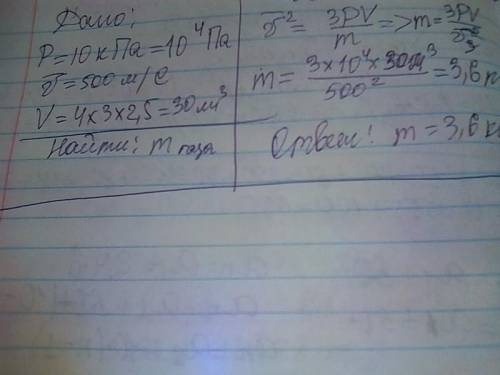 Дано:
P=10кПа=10⁴Па
v̅=500м/с
V=4×3×2,5=30м³
Найти: m газа
v̅²= 3PV/m => m= 3PV/v̅²
m= 3×10⁴×30м³/500² =3,6
Ответ: m=3,6